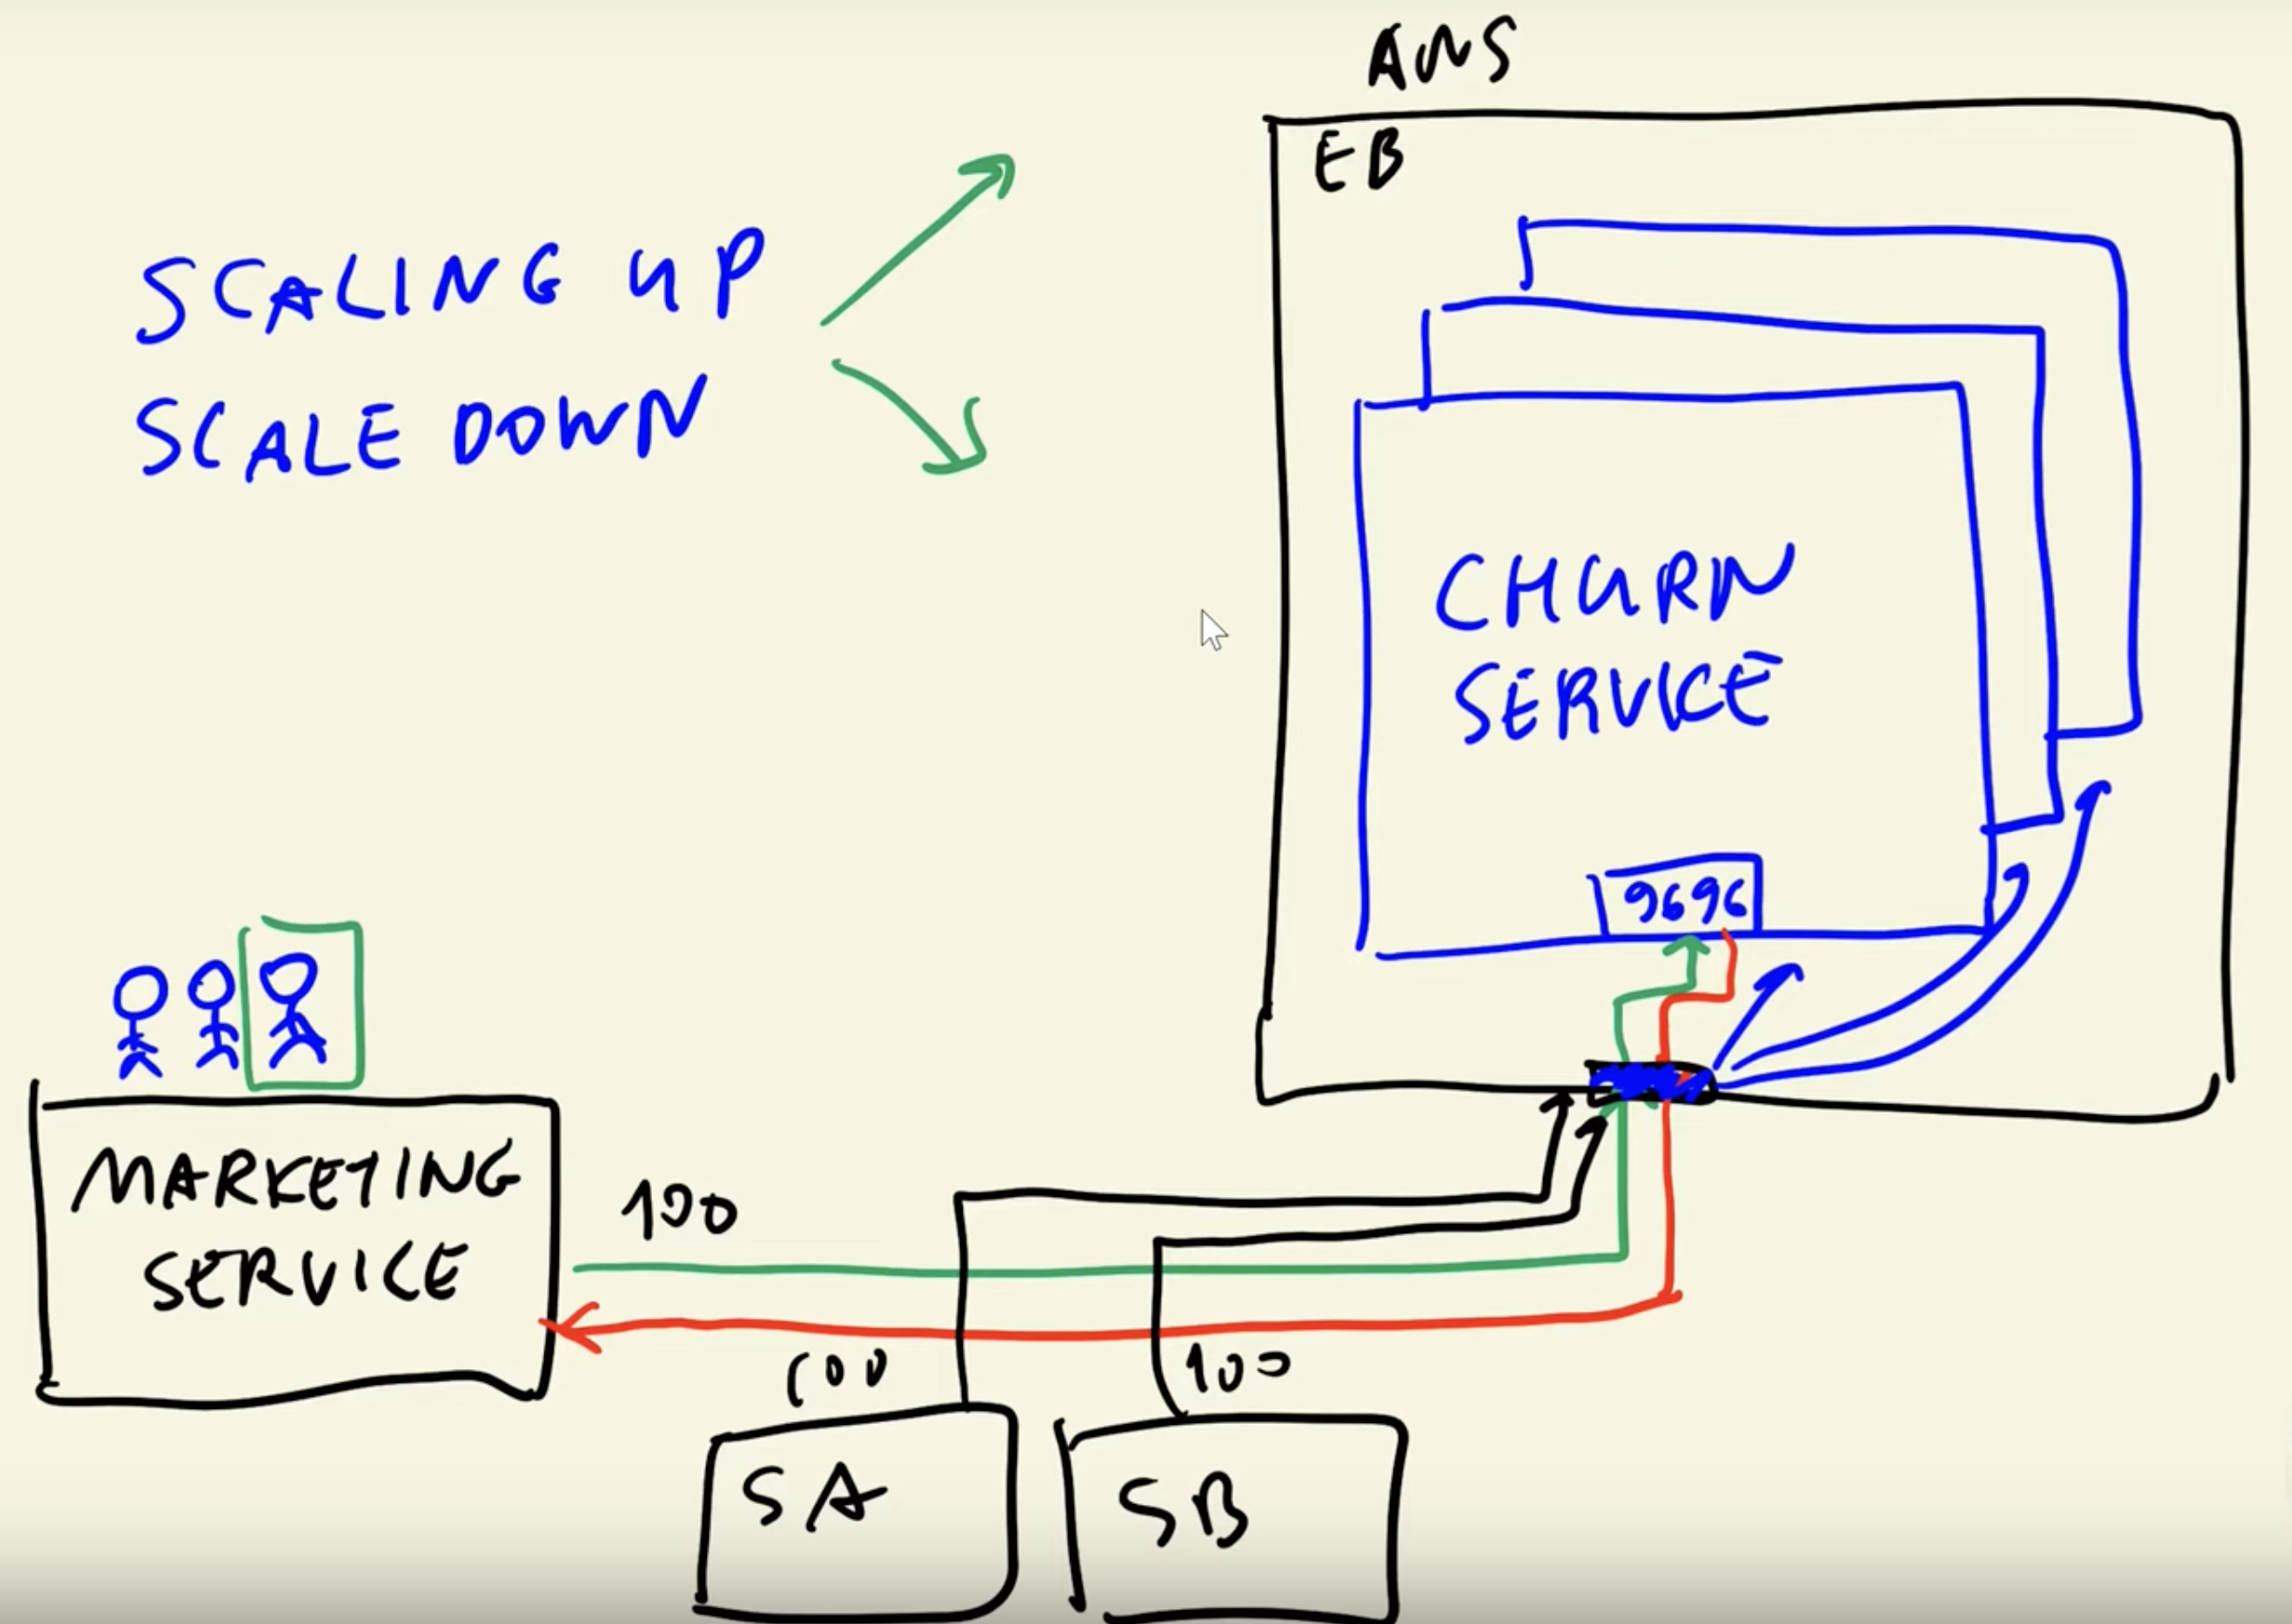 AWS
EB
SCALING UP
SCALE DOWN
CHURN
SERVICE
9696
MARKETING
SERVICE
100
100
100
SA
SB